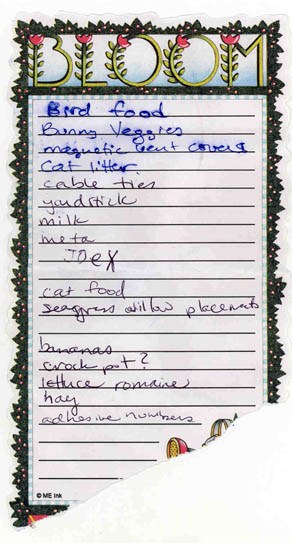 BLOOM
Bird food
Bunny Veggies
magnetic vent covers
Cat litter
cable ties
yardstick
milk
meta
JOEY
cat food
seagrass willow placemats
bananas
crock pot?
lettuce romaine
hay
adhesive numbers
© ME Ink